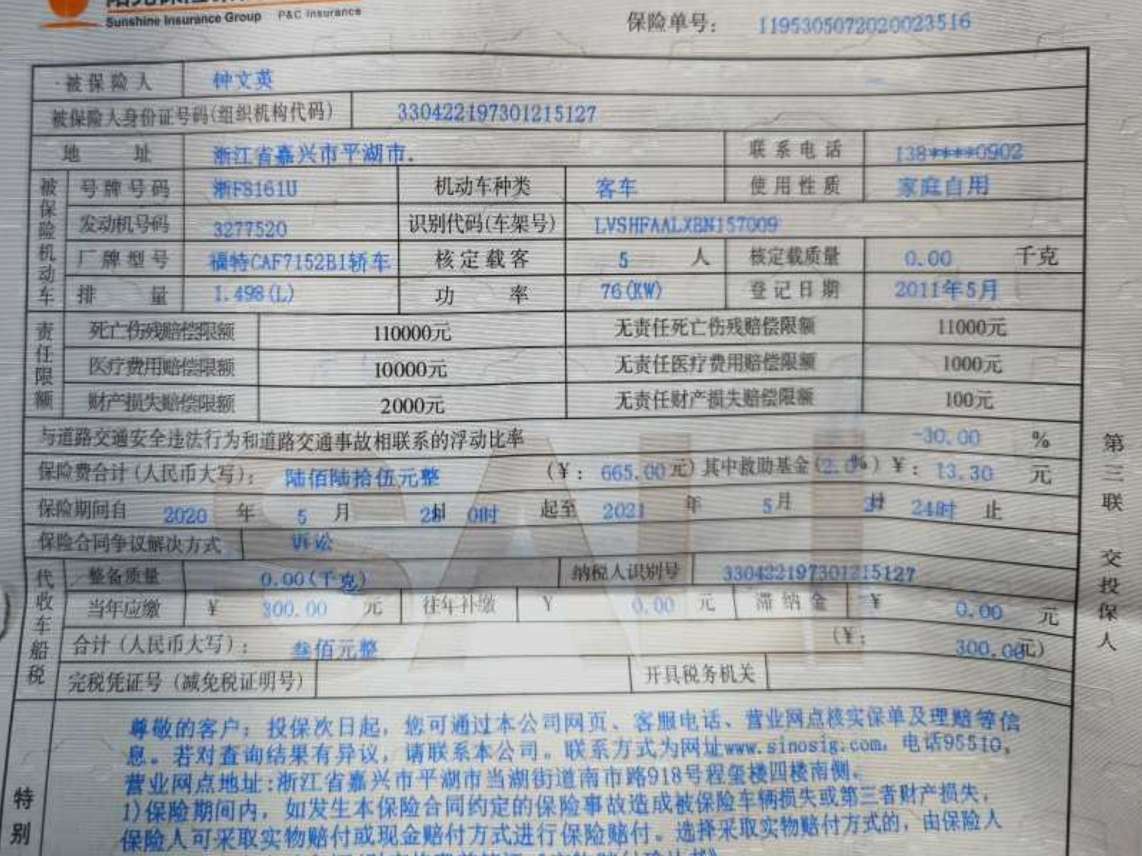 Sunshine Insurance Group P&C Insurance
保险单号: 1195305072020023516
被保险人 钟文英
被保险人身份证号码(组织机构代码) 330422197301215127
地址 浙江省嘉兴市平湖市. 联系电话 138****0902
被保险机动车
号牌号码 浙F8161U 机动车种类 客车 使用性质 家庭自用
发动机号码 3277520 识别代码(车架号) LVSHFAALXBN157009
厂牌型号 福特CAF7152B1轿车 核定载客 5 人 核定载质量 0.00 千克
排量 1.498(L) 功率 76(KW) 登记日期 2011年5月
责任限额
死亡伤残赔偿限额 110000元 无责任死亡伤残赔偿限额 11000元
医疗费用赔偿限额 10000元 无责任医疗费用赔偿限额 1000元
财产损失赔偿限额 2000元 无责任财产损失赔偿限额 100元
与道路交通安全违法行为和道路交通事故相联系的浮动比率 -30.00 %
保险费合计(人民币大写): 陆佰陆拾伍元整 (¥: 665.00元)其中救助基金(2.0%)¥: 13.30 元
保险期间自 2020 年 5 月 0时 起至 2021 年 5月 24时 止
保险合同争议解决方式 诉讼
代收车船税
整备质量 0.00(千克) 纳税人识别号 330422197301215127
当年应缴 ¥ 300.00 元 往年补缴 ¥ 0.00 元 滞纳金 ¥ 0.00 元
合计(人民币大写): 叁佰元整 (¥: 300.00元)
完税凭证号(减免税证明号) 开具税务机关
第三联 交投保人
特别
尊敬的客户:投保次日起,您可通过本公司网页、客服电话、营业网点核实保单及理赔等信
息。若对查询结果有异议,请联系本公司。联系方式为网址www.sinosig.com,电话95510,
营业网点地址:浙江省嘉兴市平湖市当湖街道南市路918号程玺楼四楼南侧.
1)保险期间内,如发生本保险合同约定的保险事故造成被保险车辆损失或第三者财产损失,
保险人可采取实物赔付或现金赔付方式进行保险赔付。选择采取实物赔付方式的,由保险人